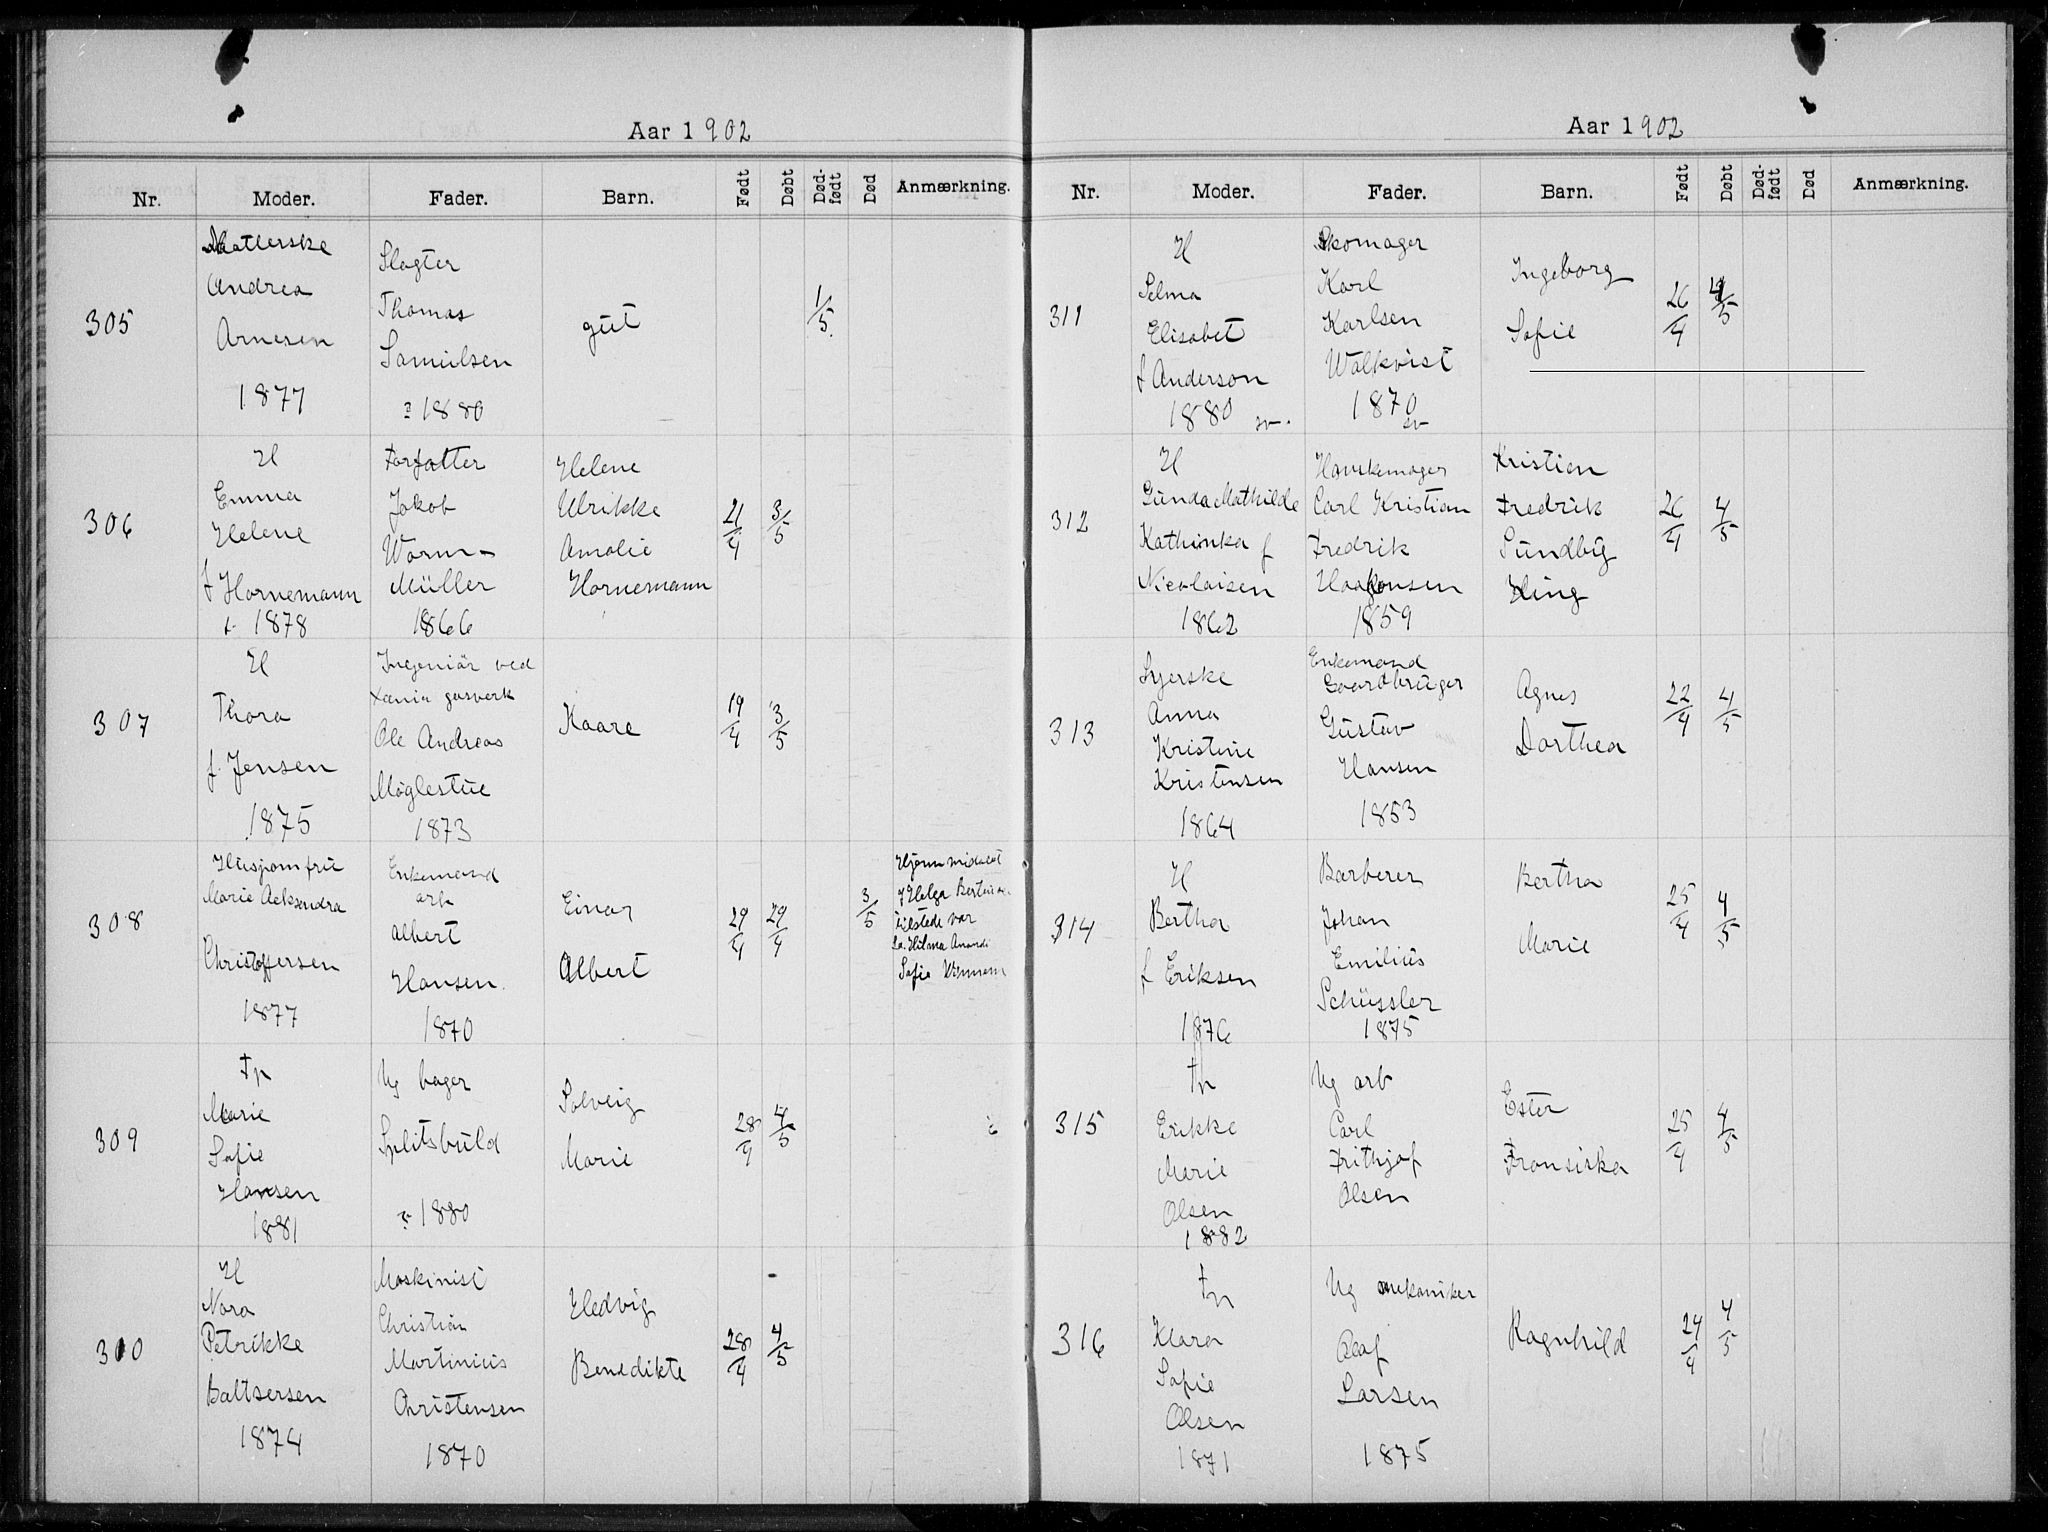 Aar 1902
Nr. Moder. Fader. Barn. Født Døbt Død-født Død Anmærkning.
305
Andrea
Arnesen
1877
Slagter
Thomas
Samuelsen
1880
gut
1/5
306
H
Emma
Helene
f Hornemann
1878
Forfatter
Jakob
Worm-
Müller
1866
Helene
Ulrikke
Amalie
Hornemann
21/4
3/5
307
H
Thora
f. Jensen
1875
Ingeniør ved
Xania gasverk
Ole Andreas
Møglestue
1873
Kaare
19/4
3/5
308
Husjomfru
Marie Aleksandra
Christoffersen
1877
Enkemand
arb
Albert
Hansen
1870
Einar
Albert
29/4
29/4
3/5
Hjemmedøbt
f Helga
tilstede var
Hilma
Sofie
309
Fp
Marie
Sofie
Hansen
1881
Ug bager
Splitshuld
1880
Solveig
Marie
28/4
4/5
300
H
Nora
Petrikke
Baltsersen
1874
Maskinist
Christian
Martinius
Christensen
1870
Hedvig
Benedikte
28/4
4/5
Aar 1902
Nr. Moder. Fader. Barn. Født Døbt Død-født Død Anmærkning.
311
H
Selma
Elisabet
f Anderson
1880 sv.
Skomager
Karl
Karlsen
Walkvist
1870
sv
Ingeborg
Sofie
26/4
4/5
312
H
Gunda Mathilde
Kathinka f
Nicolaisen
1862
Hanskemager
Carl Kristian
Fredrik
Haakonsen
1859
Kristian
Fredrik
Sundby
Hing
26/4
4/5
313
Syerske
Anna
Kristine
Kristensen
1864
Enkemand
Gaardbruger
Gustav
Hansen
1853
Agnes
Dorthea
22/4
4/5
314
H
Bertha
f Eriksen
1876
Barberer
Johan
Emilius
Schüssler
1875
Bertha
Marie
25/4
4/5
315
Fp
Erikke
Marie
Olsen
1882
Ug arb
Carl
Frithjof
Olsen
Ester
Fransiska
25/4
4/5
316
Fp
Klara
Sofie
Olsen
1871
Ug mekaniker
Olaf
Larsen
1875
Ragnhild
24/4
4/5